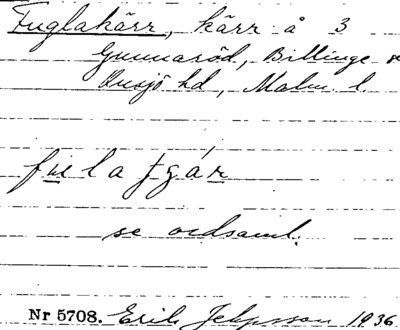 Fuglakärr, kärr å 3
Gunnaröd, Billinge sn
Onsjö hd, Malm. l.
se ordsaml.
Nr 5708. Erik Jeppsson 1936.